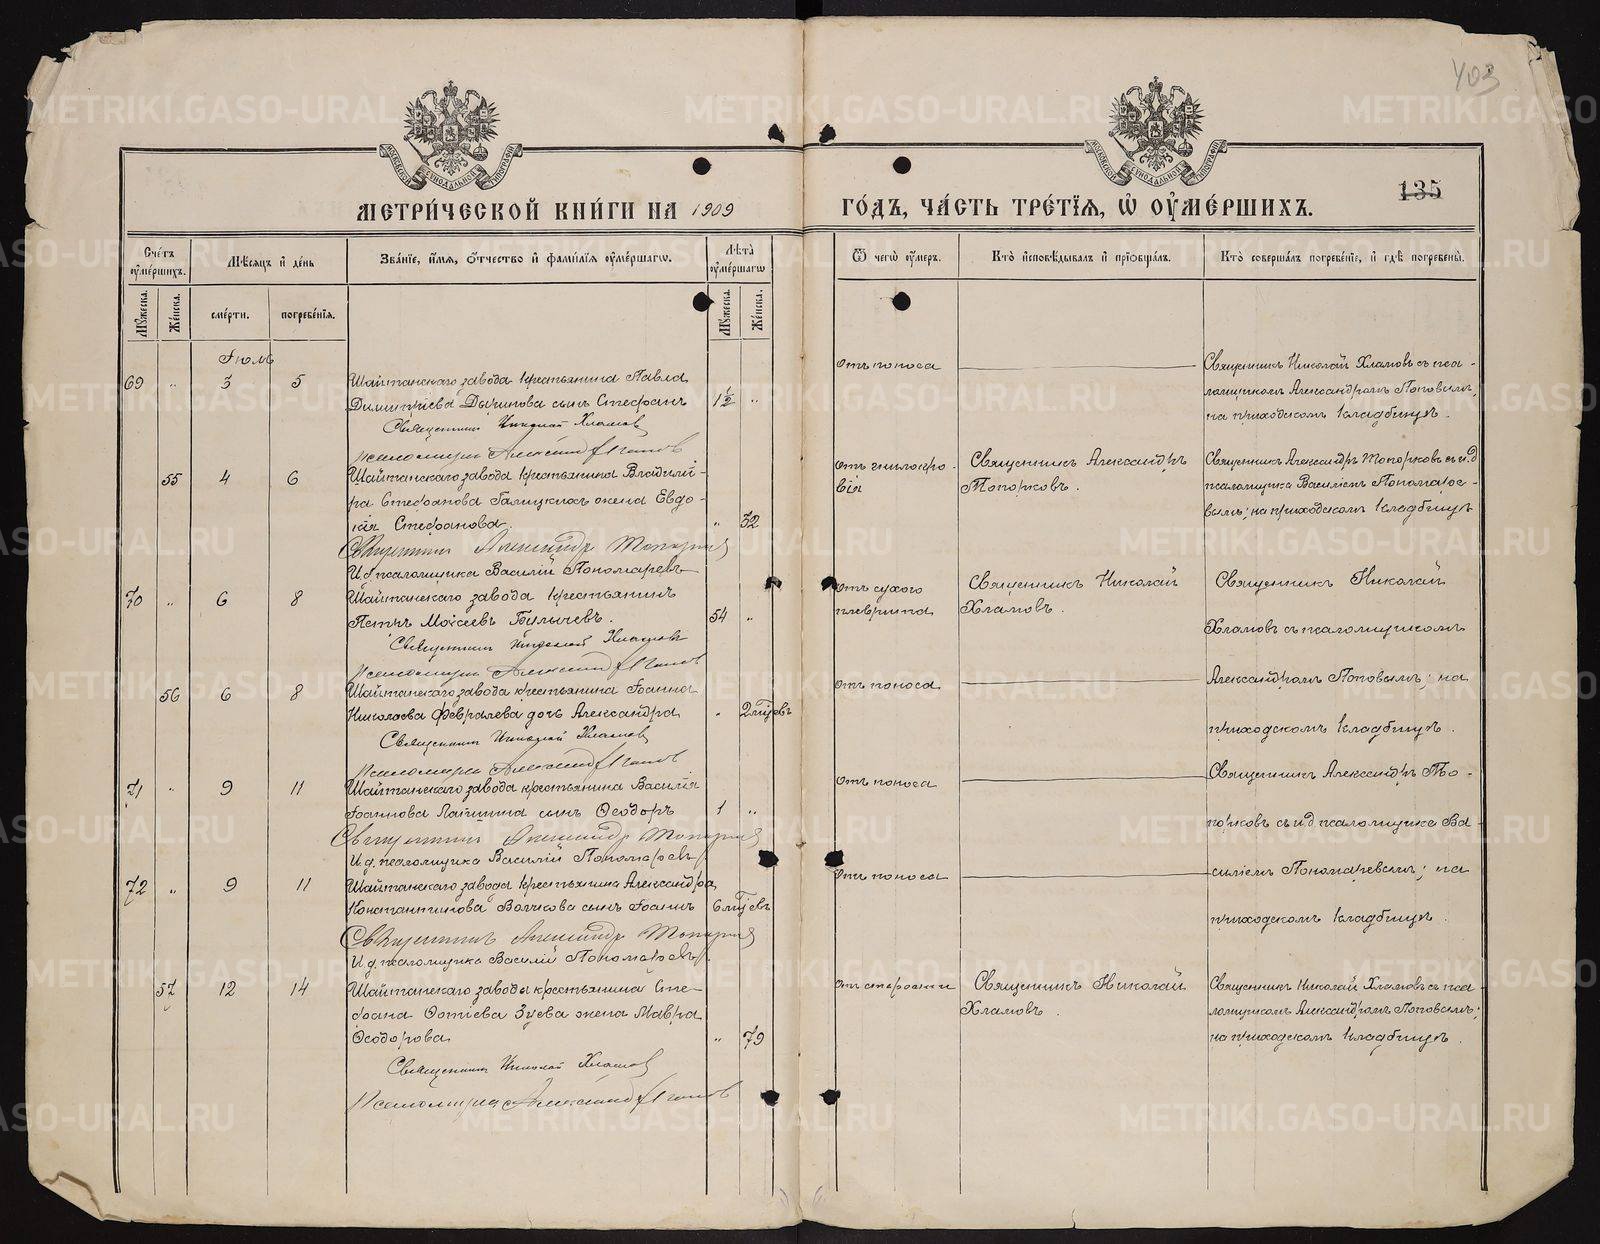 403
МЕТРИЧЕСКОЙ КНИГИ НА 1909
ГОДЪ, ЧАСТЬ ТРЕТІЯ, Ѽ ОУМЕРШИХЪ.
135
Счетъ оумершихъ.
Мѣсяцъ и день
Званіе, имя, отчество и фамилія оумершагѡ.
Лѣта оумершагѡ
Ѿ чегѡ оумеръ.
Кто исповѣдывалъ и пріобщалъ.
Кто совершалъ погребеніе, и гдѣ погребены.
Мужеска.
Женска.
смерти.
погребенія.
Мужеска.
Женска.
Іюль
69 " 3 5
Шайтанскаго завода крестьянина Павла
Димитріева сынъ Стефанъ 1½ "
Священникъ Николай Хламовъ
Отъ поноса
Священникъ Николай Хламовъ съ пса-
ломщикомъ Александромъ Поповымъ;
на приходскомъ кладбищѣ.
55 4 6
Шайтанскаго завода крестьянина Владими-
ра Стефанова Галицкихъ жена Евдо-
кія Стефанова. " 32
Священникъ Александръ Топорковъ
И.д. псаломщика Василій Пономаревъ
Отъ гнилокро-
вія
Священникъ Александръ
Топорковъ.
Священникъ Александръ Топорковъ съ и.д
псаломщика Василіемъ Пономаре-
вымъ; на приходскомъ кладбищѣ
70 " 6 8
Шайтанскаго завода крестьянинъ
Петръ Моѵсеевъ Булычевъ. 54 "
Священникъ Николай Хламовъ
Отъ сухого
плеврита
Священникъ Николай
Хламовъ.
Священникъ Николай
Хламовъ съ псаломщикомъ
Александромъ Поповымъ; на
приходскомъ кладбищѣ.
56 6 8
Шайтанскаго завода крестьянина Іоанна
Николаева Февралева дочь Александра " 2 мѣсяцъ
Священникъ Николай Хламовъ
Отъ поноса
71 " 9 11
Шайтанскаго завода крестьянина Василія
Іоаннова Лапшина сынъ Ѳеодоръ 1 "
Священникъ Александръ Топорковъ
И.д. псаломщика Василій Пономаревъ
Отъ поноса
Священникъ Александръ То-
порковъ съ и.д псаломщика Ва-
силіемъ Пономаревымъ; на
приходскомъ кладбищѣ.
72 " 9 11
Шайтанскаго завода крестьянина Александра
Константинова Волкова сынъ Іоаннъ 6
Священникъ Александръ Топорковъ
И.д. псаломщика Василій Пономаревъ
Отъ поноса
57 12 14
Шайтанскаго завода крестьянина Сте-
фана Фотіева Зуева жена Мавра
Ѳеодорова " 79
Священникъ Николай Хламовъ
Псаломщикъ Александръ Поповъ
Отъ старости
Священникъ Николай
Хламовъ.
Священникъ Николай Хламовъ съ пса-
ломщикомъ Александромъ Поповымъ;
на приходскомъ кладбищѣ.
METRIKI.GASO-URAL.RU